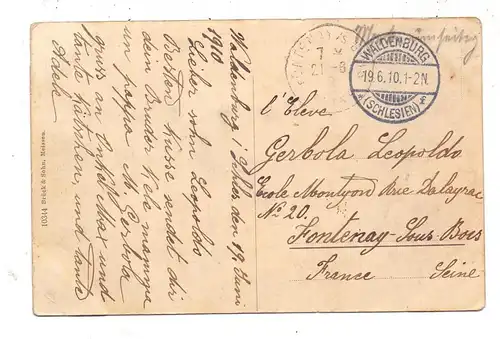 Waldenburg i/Schles den 19. Juni
1910
Lieber sohn Leopoldo
Besten Kusse sendet dir
dein Bruder Kele mamma
un pappa M Gerbola
gruss an Onkel Max und
tante Kätschen, und tante
Adele
10344 Brück & Sohn, Meissen.
7
21-6
WALDENBURG
19.6.10.1-2N.
(SCHLESIEN)
l'Eleve
Gerbola Leopoldo
Ecole Montyon Rue Dalayrac
No 20.
Fontenay-Sous Bois
France Seine